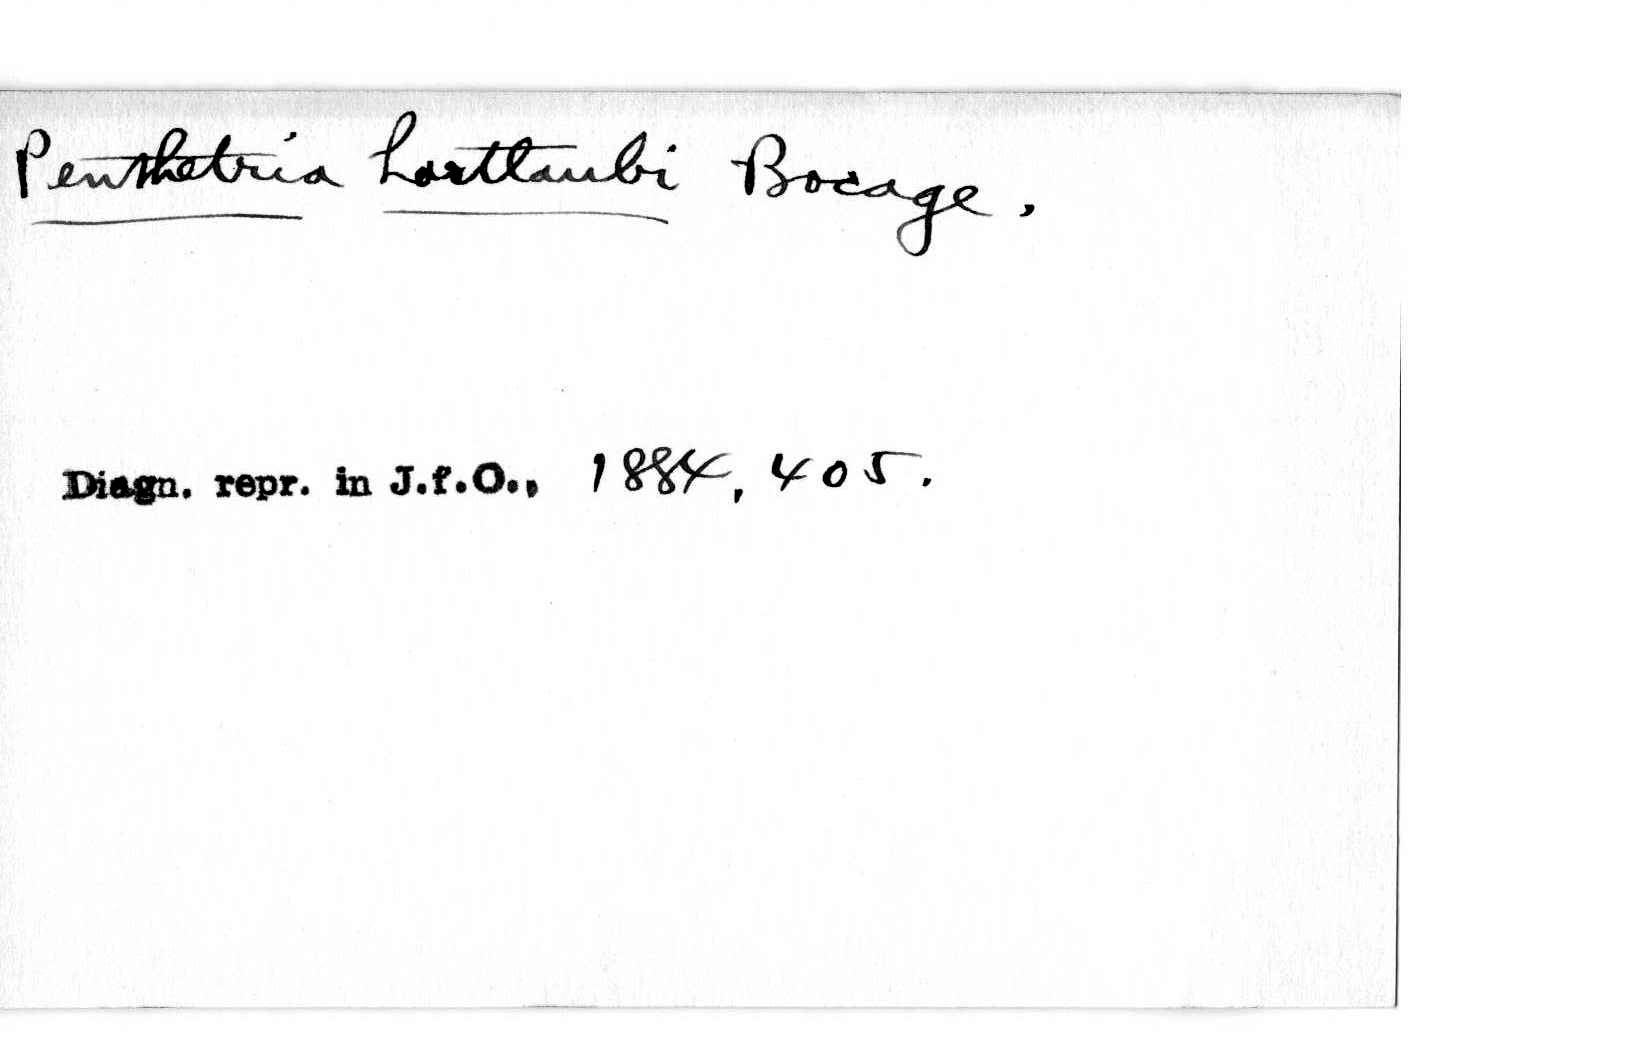 Penthetria hartlaubi Bocage.
Diagn. repr. in J.f.O., 1884, 405.